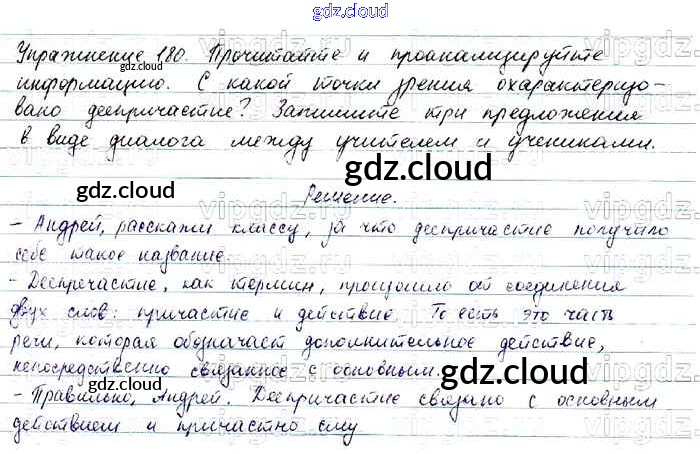 gdz.cloud
Упражнение 180. Прочитайте и проанализируйте
информацию. С какой точки зрения охарактеризо-
вано деепричастие? Запишите три предложения
в виде диалога между учителем и учениками.
Решение.
- Андрей, расскажи классу, за что деепричастие получило
себе такое название.
- Деепричастие, как термин, произошло от соединения
двух слов: причастие и действие. То есть это часть
речи, которая обозначает дополнительное действие,
непосредственно связанное с основным.
- Правильно, Андрей. Деепричастие связано с основным
действием и причастно ему
gdz.cloud
gdz.cloud
gdz.cloud
gdz.cloud
gdz.cloud
gdz.cloud